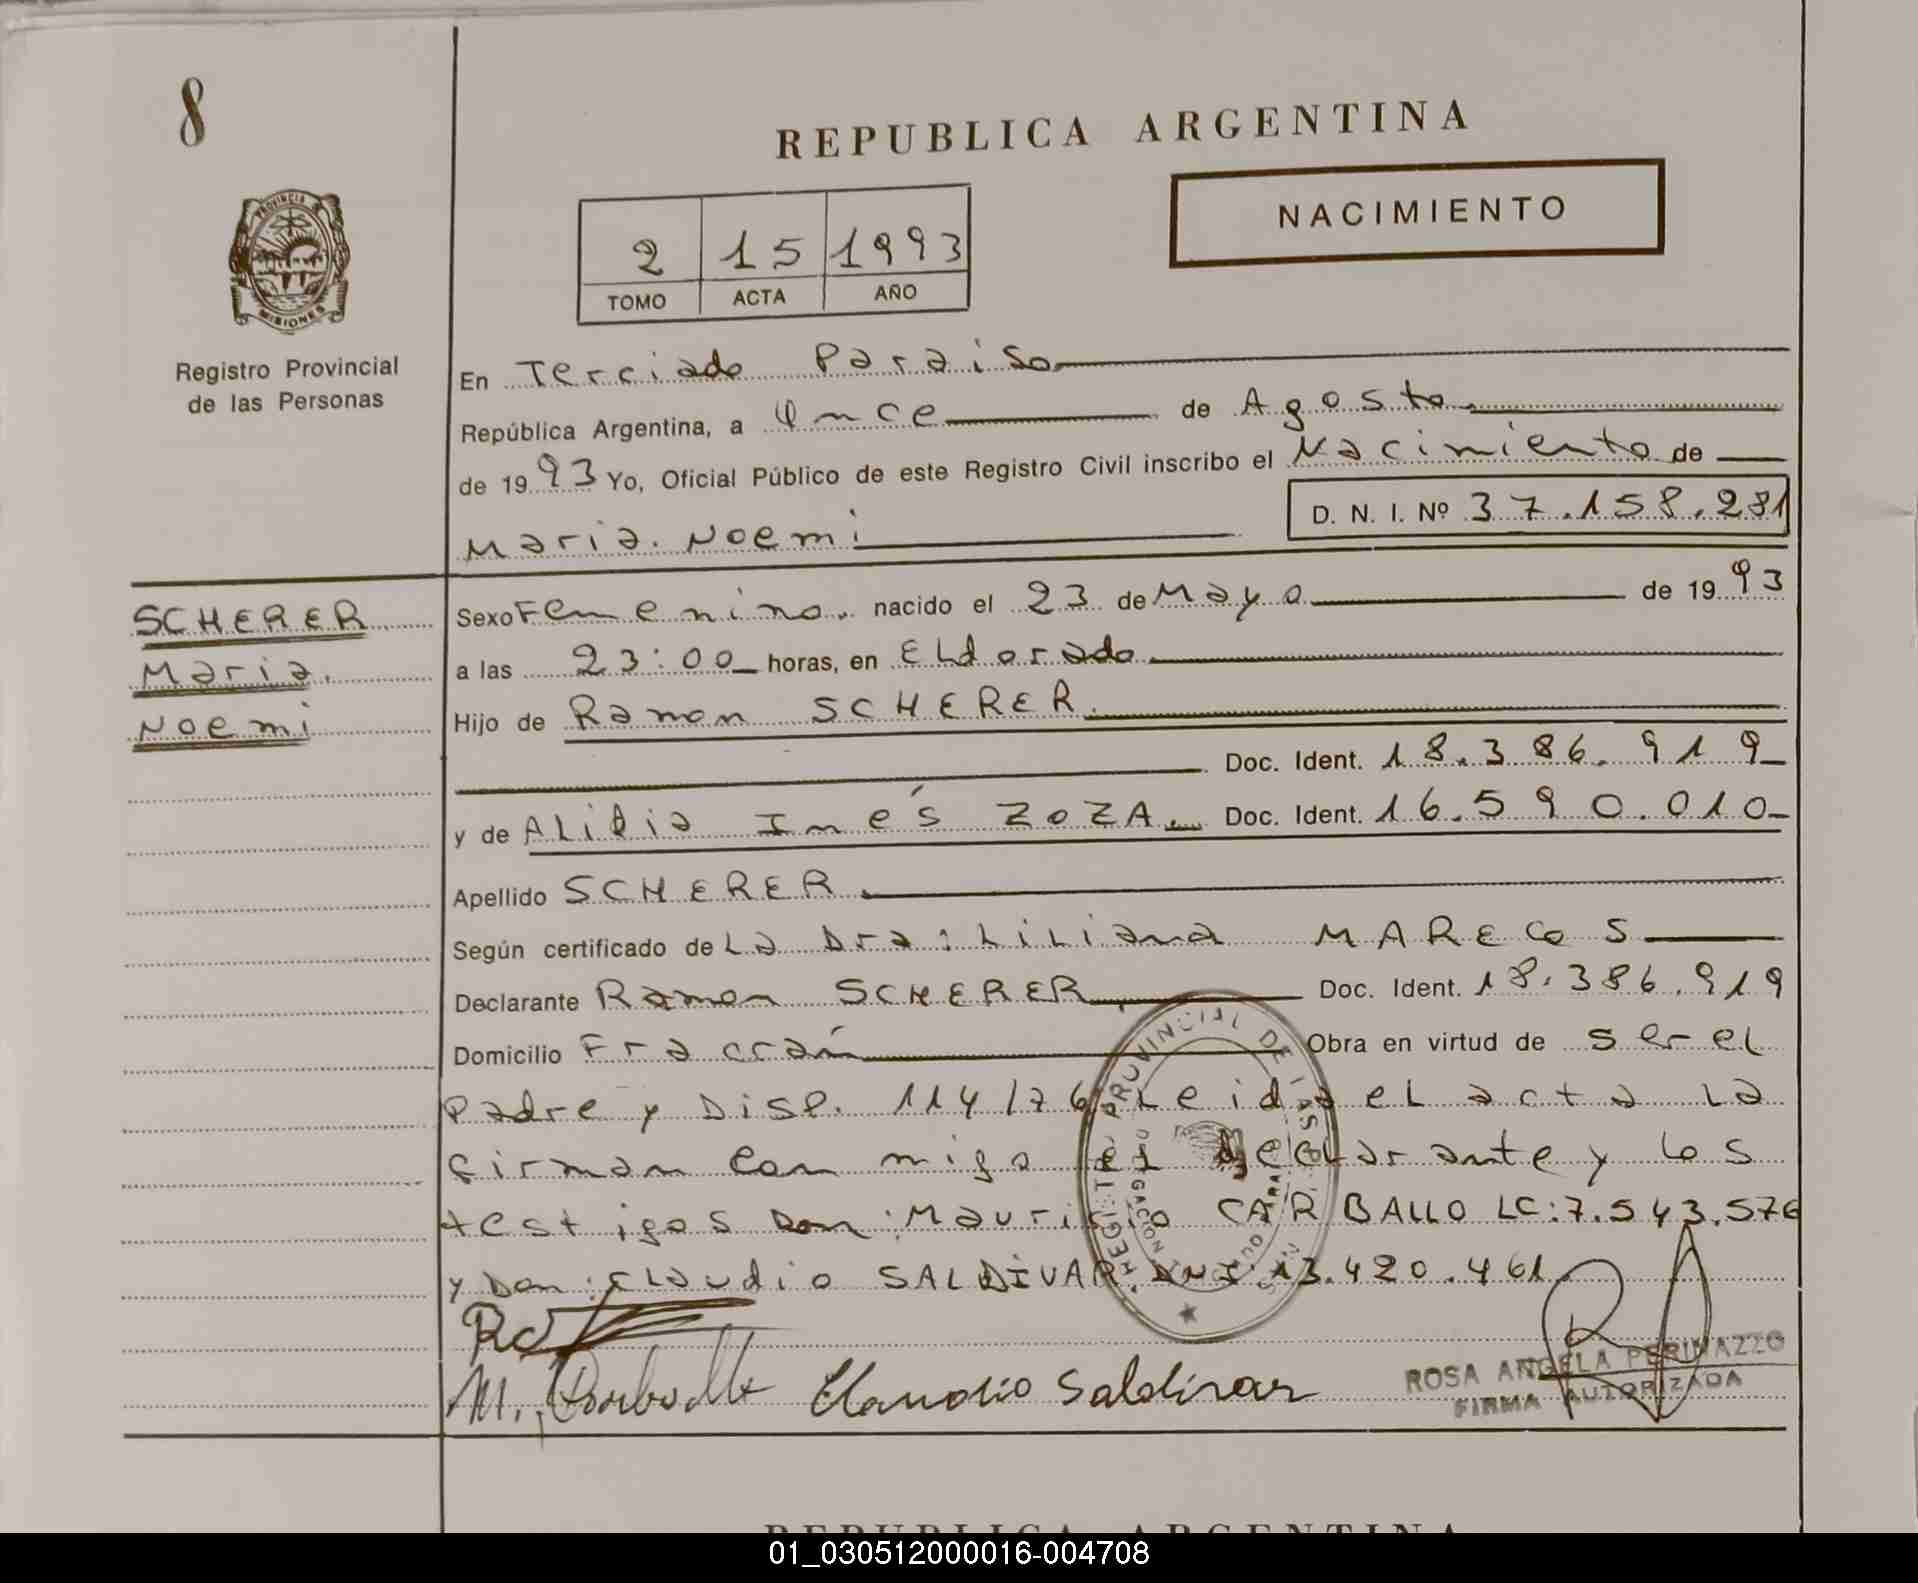 8
REPUBLICA ARGENTINA
NACIMIENTO
2 15 1993
TOMO ACTA AÑO
PROVINCIA
MISIONES
Registro Provincial
de las Personas
En Terciado Paraiso
República Argentina, a Once de Agosto
de 1993 Yo, Oficial Público de este Registro Civil inscribo el Nacimiento de
D. N. I. Nº 37.158.281
Maria Noemi
SCHERER
Maria
Noemi
Sexo Femenino. nacido el 23 de Mayo de 1993
a las 23:00 horas, en ELdorado
Hijo de Ramon SCHERER.
Doc. Ident. 18.386.919
y de Inés ZOZA. Doc. Ident. 16.590.010
Apellido SCHERER.
Según certificado de La Dra: Liliana MARECOS
Declarante Ramon SCHERER Doc. Ident. 18.386.919
Domicilio Fracrán Obra en virtud de ser el
Padre y Disp. 114/76 Leida el acta La
firman con migo el declarante y los
testigos Don: Mauricio CARBALLO LC:7.543.576
y Don: Claudio SALDIVAR DNI 13.420.461
REGISTRO PROVINCIAL DE LAS
DELEGACION
M. Carballo Claudio Saldivar
ROSA ANGELA PERINAZZO
FIRMA AUTORIZADA
REPUBLICA ARGENTINA
01_030512000016-004708